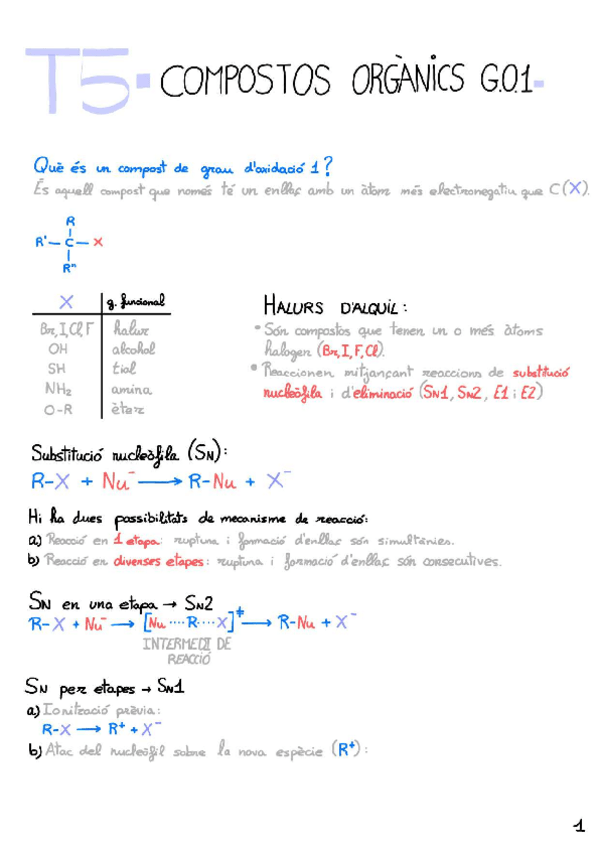 T5. COMPOSTOS ORGÀNICS G.O.1.
Què és un compost de grau d'oxidació 1?
És aquell compost que només té un enllaç amb un àtom més electronegatiu que C (X).
R
R'—C—X
R"
X g. funcional
Br, I, Cl, F halur
OH alcohol
SH tiol
NH₂ amina
O-R èter
HALURS D'ALQUIL:
• Són compostos que tenen un o més àtoms
halogen (Br, I, F, Cl).
• Reaccionen mitjançant reaccions de substitució
nucleòfila i d'eliminació (SN1, SN2, E1 i E2)
Substitució nucleòfila (SN):
R-X + Nu⁻ ⟶ R-Nu + X⁻
Hi ha dues possibilitats de mecanisme de reacció:
a) Reacció en 1 etapa: ruptura i formació d'enllaç són simultànies.
b) Reacció en diverses etapes: ruptura i formació d'enllaç són consecutives.
SN en una etapa → SN2
R-X + Nu⁻ ⟶ [Nu····R····X]‡ ⟶ R-Nu + X⁻
INTERMEDI DE
REACCIÓ
SN per etapes → SN1
a) Ionització prèvia:
R-X ⟶ R⁺ + X⁻
b) Atac del nucleòfil sobre la nova espècie (R⁺):
1